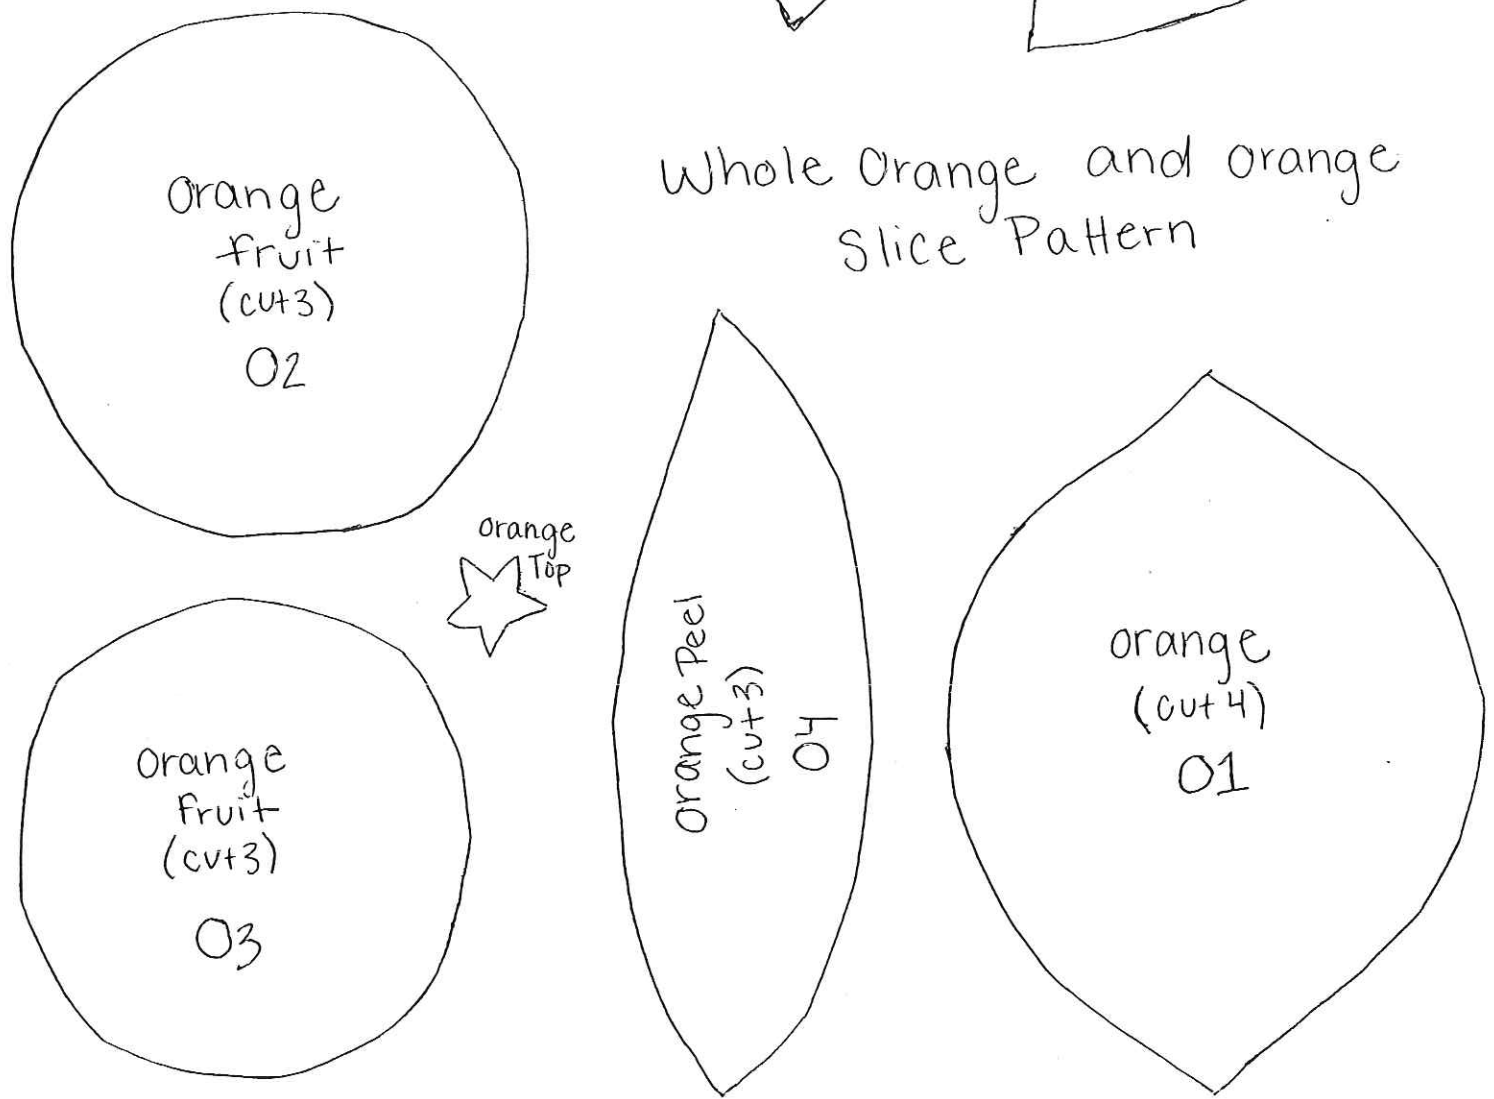 Whole Orange and orange
Slice Pattern
Orange
fruit
(cut3)
O2
orange
Top
Orange
fruit
(cut3)
O3
Orange Peel
(cut3)
O4
orange
(cut 4)
O1